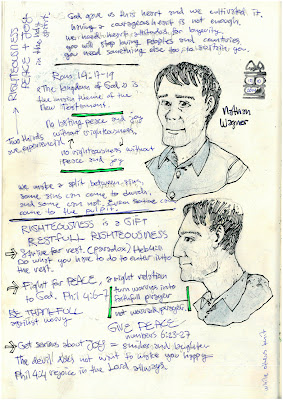 God gave us this heart and we cultivated it.
having a courageous heart is not enough.
we need heart attitudes for longevity
you will stop loving peoples and countries
you need something else to sustain you.
RIGHTEOUSNESS
PEACE + JOY
in the holy
spirit
Rom 14:17-19
"the kingdom of God" is
the main theme of the
New Testament.
No lasting peace and joy
without righteousness,
no righteousness without
peace and joy
Two thirds
are experiential
Nathan
Wagner
we make a split between sins,
some sins can come to church,
and some can not. Even some can
come to the pulpit.
RIGHTEOUSNESS is a GIFT
RESTFULL RIGHTEOUSNESS
strive for rest. (paradox) Hebrews
Do what you hope to do to enter into
the rest.
Fight for PEACE,
to God. Phil 4:6-7
a right relation
turn worries into
faithfull prayer
not worried prayer.
BE THANKFULL
against worry
GIVE PEACE
numbers 6:23-27
Get serious about JOY =
The devil does not want to make you happy
Phil 4:4 rejoice in the Lord always.